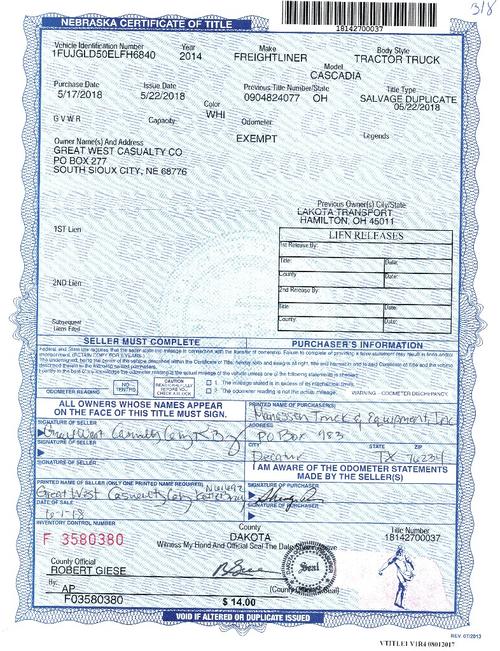 318
NEBRASKA CERTIFICATE OF TITLE
18142700037
Vehicle Identification Number Year Make Body Style
1FUJGLD50ELFH6840 2014 FREIGHTLINER TRACTOR TRUCK
Model
CASCADIA
Purchase Date Issue Date Previous Title Number/State Title Type
5/17/2018 5/22/2018 0904824077 OH SALVAGE DUPLICATE
05/22/2018
Color
WHI
G V W R Capacity Odometer Legends
EXEMPT
Owner Name(s) And Address
GREAT WEST CASUALTY CO
PO BOX 277
SOUTH SIOUX CITY, NE 68776
Previous Owner(s) City/State
LAKOTA TRANSPORT
HAMILTON, OH 45011
1ST Lien
LIEN RELEASES
1st Release By:
Title: Date:
County Date:
2ND Lien
2nd Release By:
Title: Date:
County: Date:
Subsequent
Liens Filed
SELLER MUST COMPLETE PURCHASER'S INFORMATION
ODOMETER READING
NO TENTHS
CAUTION
READ CAREFULLY
BEFORE YOU
CHECK A BLOCK
1. The mileage stated is in excess of its mechanical limits.
2. The odometer reading is not the actual mileage. WARNING - ODOMETER DISCREPANCY
ALL OWNERS WHOSE NAMES APPEAR
ON THE FACE OF THIS TITLE MUST SIGN.
PRINTED NAME OF PURCHASER(S)
Truck & Equipment, Inc
SIGNATURE OF SELLER
Great West Casualty
ADDRESS
PO Box 983
SIGNATURE OF SELLER
CITY STATE ZIP
Decatur TX 76234
SIGNATURE OF SELLER
I AM AWARE OF THE ODOMETER STATEMENTS
MADE BY THE SELLER(S)
PRINTED NAME OF SELLER (ONLY ONE PRINTED NAME REQUIRED)
Great West Casualty
SIGNATURE OF PURCHASER
DATE OF SALE
SIGNATURE OF PURCHASER
INVENTORY CONTROL NUMBER
F 3580380
County
DAKOTA
Title Number
18142700037
Witness My Hand And Official Seal The Date Above
County Official
ROBERT GIESE
Seal
(County Official Seal)
By:
AP
F03580380
$ 14.00
VOID IF ALTERED OR DUPLICATE ISSUED
REV. 07/2013
VTITLE1 V1R4 08012017